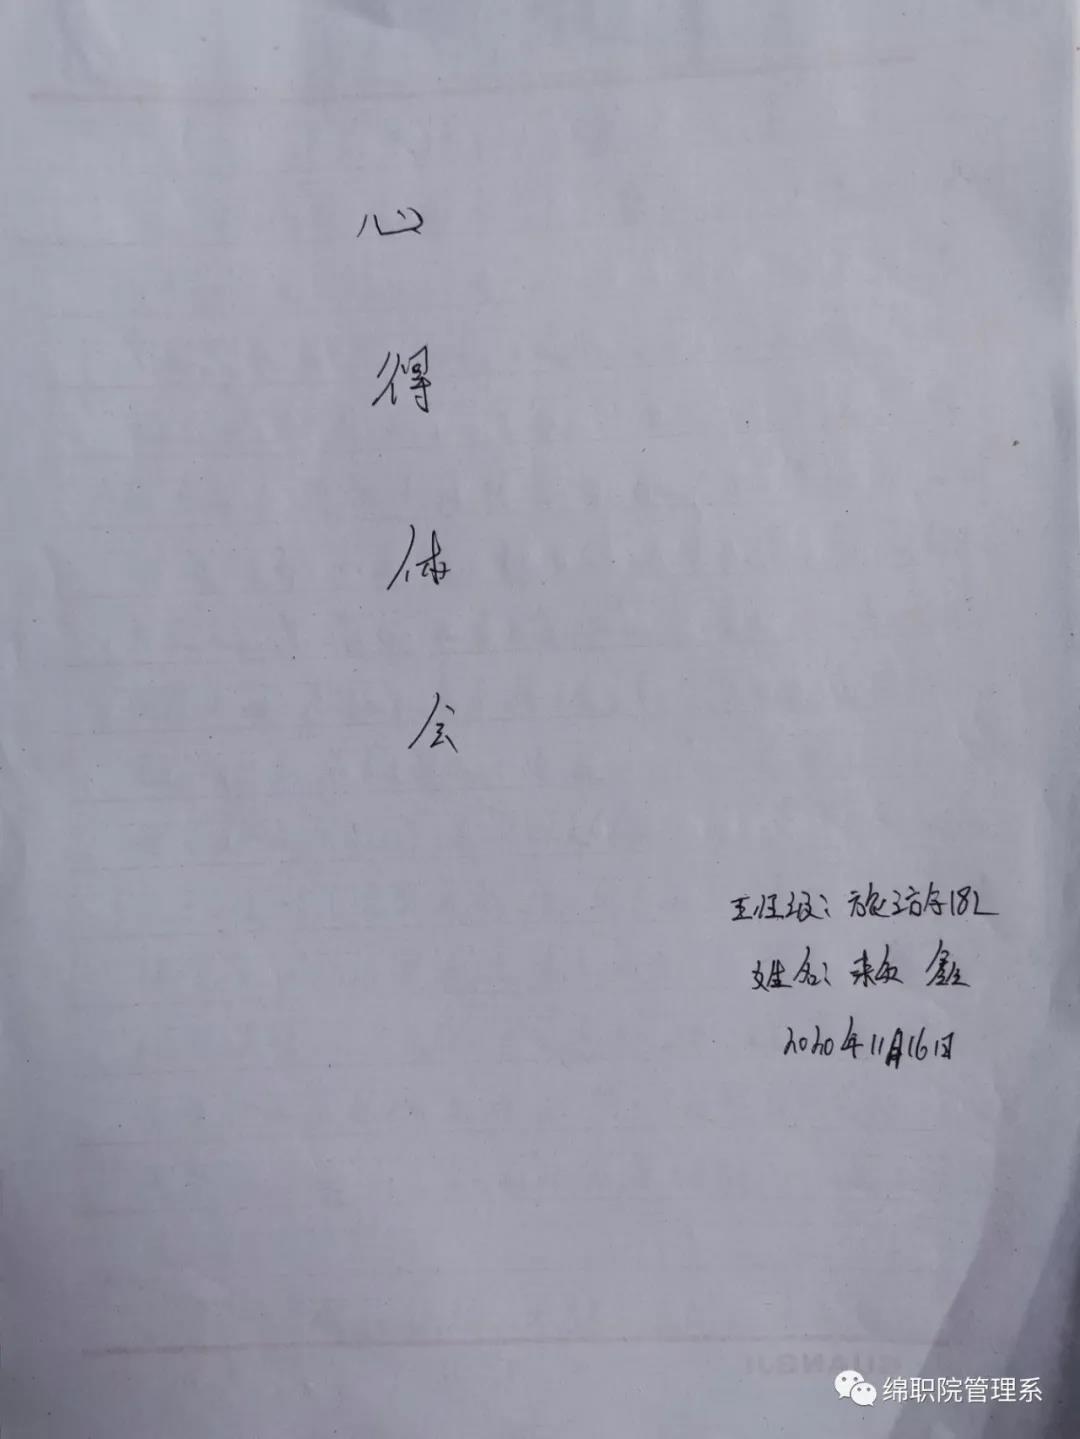 心
得
体
会
班级:旅游学182
姓名: 鑫
2020年11月16日
GUANGJI
绵职院管理系